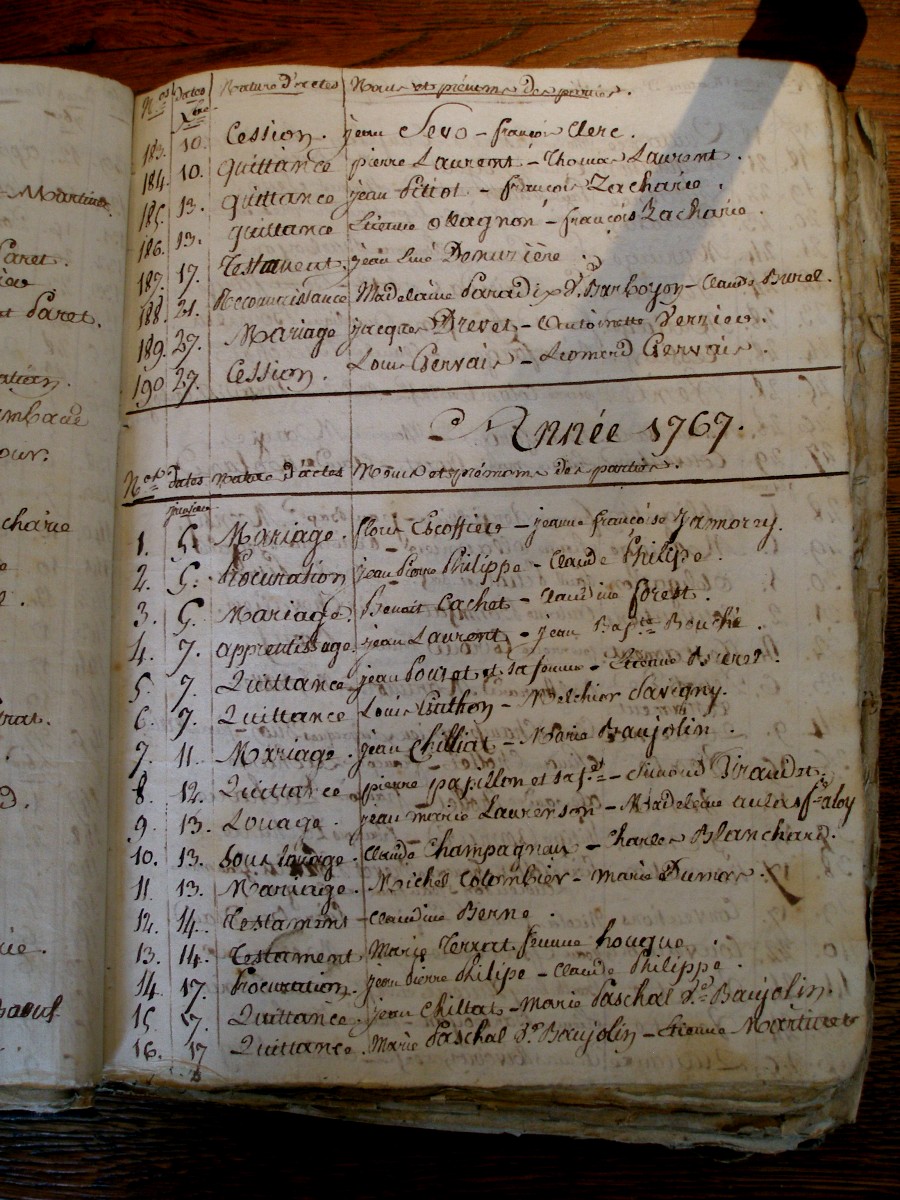 Martin
Paret.
et Paret.
chavie
N.os dates Nature d'actes Noms et prénoms des parties.
Xbre
183. 10. Cession. jean Sevo - françois Clerc.
184. 10. Quittance pierre Laurent - Thomas Laurent.
185. 13. quittance jean Petiot - françois Zacharie.
186. 13. quittance Etienne Magnon - françois Zacharie.
187. 17. Testament. jean
188. 21. Reconnoissance Madelaine Paradix Barboyon - Claude Burel.
189. 27. Mariage jacques Drevet - Antoinette Vernier.
190 27. Cession. Louis Gervais - Leonard Gervais.
Année 1767.
N.os dates nature d'actes Noms et prénoms des parties.
janvier
1. 5 Mariage. floris Escoffier - jeanne françoise Jamorry.
2. 5. Procuration jean Pierre Philippe - Claude Philippe.
3. 5. Mariage. Benoit Cachet - Claudine forest.
4. 7. apprentissage. jean Laurent - jean Bapte Bouchié.
5. 7. Quittance jean et sa femme - Etienne
6. 7. Quittance Louis Guthon - Melchior Savigny.
7. 11. Mariage. jean Chilliat - Marie Baujolin.
8. 12. Quittance pierre papillon et sa fe - Simond Giraudet.
9. 13. Louage. jean marie Laurenson - Madeleine
10. 13. Sous louage. Claude Champagnan - Charles Blanchard.
11. 13. Mariage. Michel Colombier - Marie Dumas.
12. 14. Testament - Claudine Berne.
13. 14. Testament Marie Terrat femme hougue.
14. 17. Procuration. jean Pierre Philipe - Claude Philippe.
15. 17. Quittance. jean Chillat - Marie Paschal Baujolin.
16. 17 Quittance. Marie Paschal Baujolin - Etienne Martinet